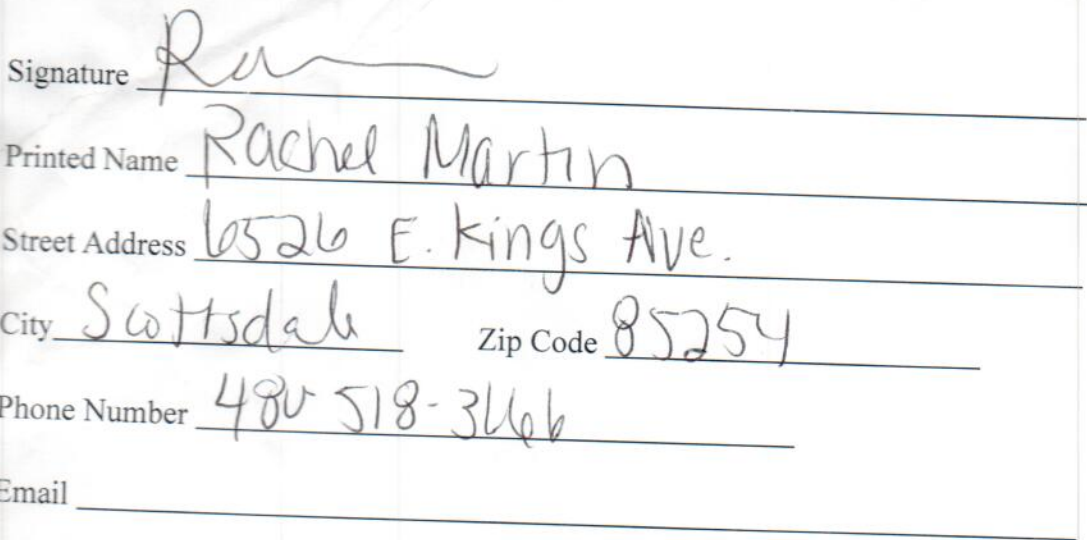 Signature
Printed Name Rachel Martin
Street Address 6526 E. Kings Ave.
City Scottsdale Zip Code 85254
Phone Number 480 518-3666
Email